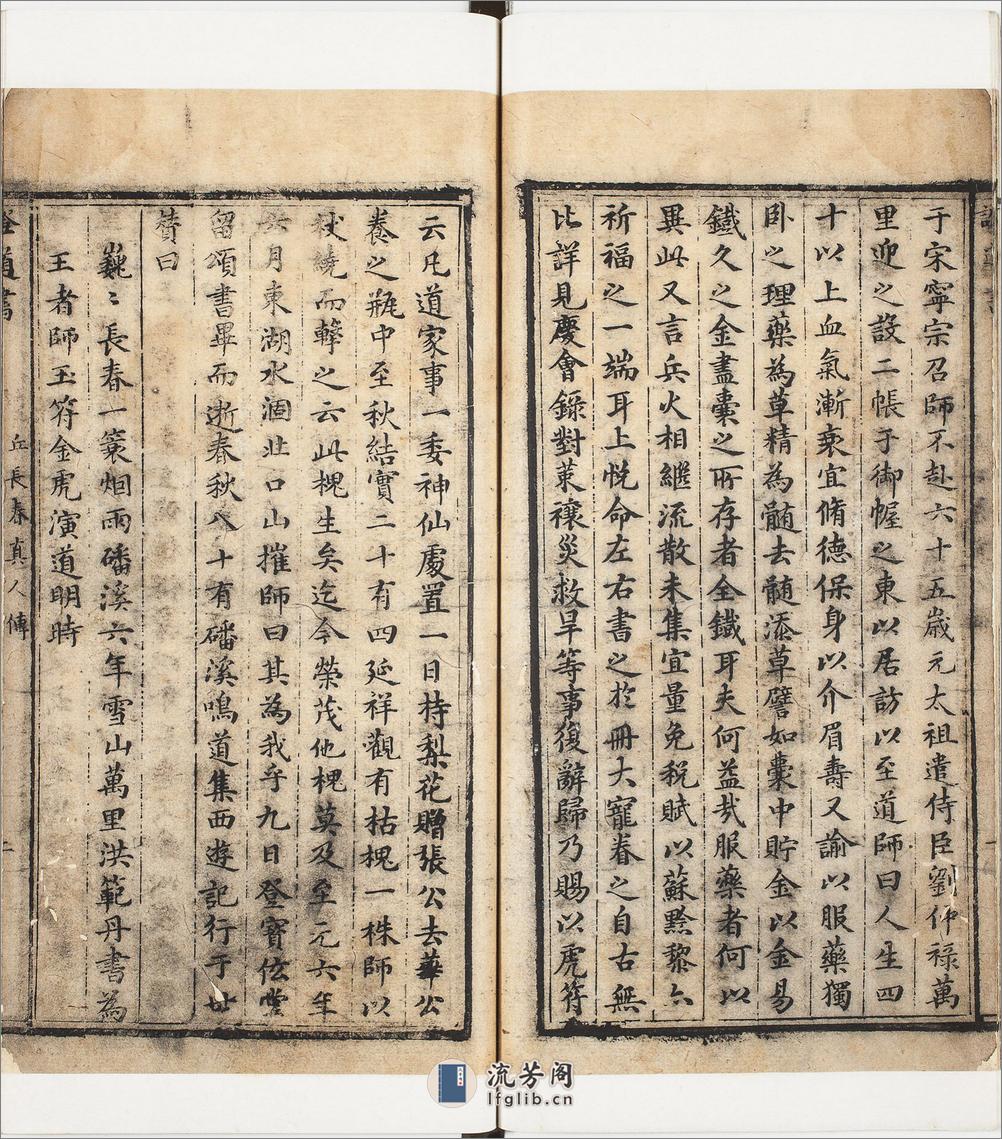 于宋寧宗召師不赴六十五歲元太祖遣侍臣劉仲祿萬
里迎之設二帳于御幄之東以居訪以至道師曰人生四
十以上血氣漸衰宜脩德保身以介眉壽又諭以服藥獨
卧之理藥為草精為髓去髓添草譬如囊中貯金以金易
鐵久之金盡囊之所存者全鐵耳夫何益㦲服藥者何以
異此又言兵火相繼流散未集宜量免税賦以蘇黔黎亦
祈福之一端耳上悅命左右書之於冊大寵眷之自古無
比詳見慶會錄對䇿禳災救旱等事復辭歸乃賜以虎符
云凡道家事一委神仙處置一日持梨花贈張公去華公
養之瓶中至秋結實二十有四延祥觀有枯槐一株師以
杖繞而擊之云此槐生矣迄今榮茂他槐莫及至元六年
六月東湖水涸北口山摧師曰其為我乎九日登寶玄堂
留頌書畢而逝春秋八十有磻溪鳴道集西遊記行于世
贊曰
巍〻長春一蓑烟雨磻溪六年雪山萬里洪範丹書為
王者師玉符金虎演道明時
丘長春真人傳
二
流芳阁
lfglib.cn